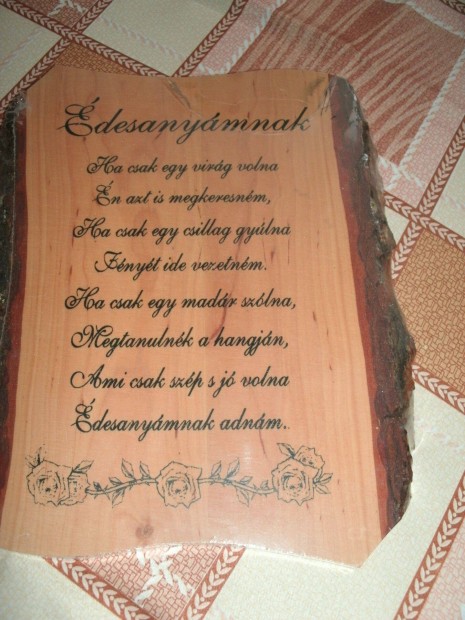 Édesanyámnak
Ha csak egy virág volna
Én azt is megkeresném,
Ha csak egy csillag gyúlna
Fényét ide vezetném.
Ha csak egy madár szólna,
Megtanulnék a hangján,
Ami csak szép s jó volna
Édesanyámnak adnám.